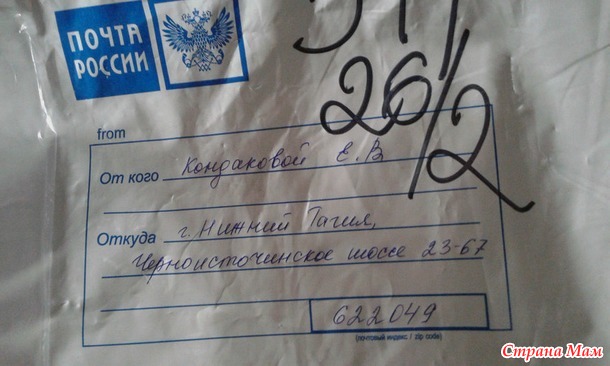 ПОЧТА
РОССИИ
26/2
from
От кого Кондаковой Е.В
Откуда г. Нижний Тагил,
Черноисточинское шоссе 23-67
622049
(почтовый индекс / zip code)
Страна Мам